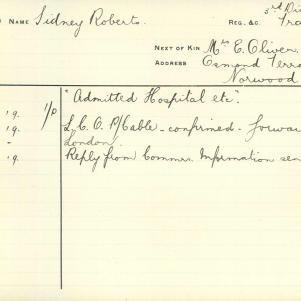 NAME Sidney Roberts.
REG. &C.
NEXT OF KIN Mrs E. Oliver
ADDRESS Osmond Terra
Norwood
19. 1/P "Admitted Hospital etc".
19. L.C.O. P/Cable - confirmed. Forwar
- London.
19. Reply from Commrs. Information sen